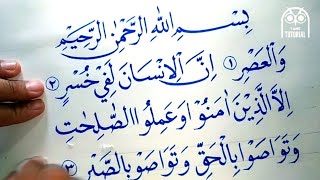 بِسْمِ اللهِ الرَّحْمٰنِ الرَّحِيْمِ
وَالْعَصْرِ ١ اِنَّ الْاِنْسَانَ لَفِيْ خُسْرٍ ٢
اِلَّا الَّذِيْنَ اٰمَنُوْا وَعَمِلُوا الصّٰلِحٰتِ
وَتَوَاصَوْا بِالْحَقِّ وَتَوَاصَوْا بِالصَّبْرِ ٣
TUTORIAL